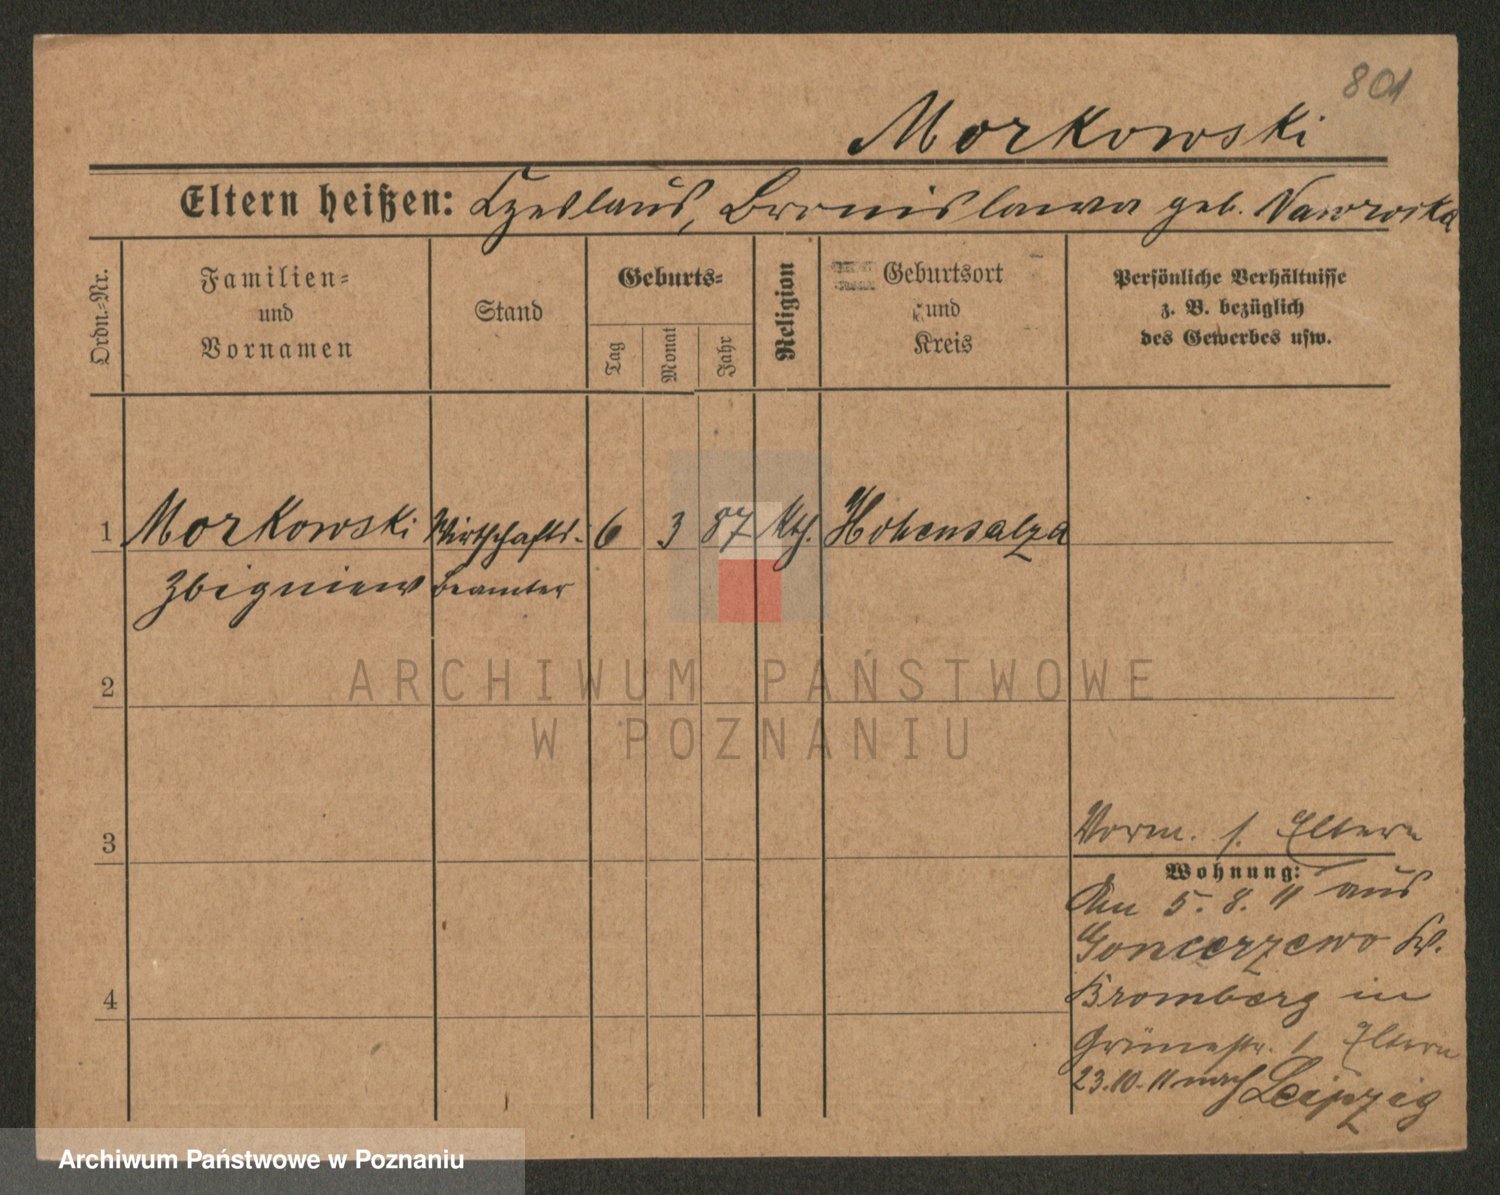 801
Morkowski
Eltern heißen: Czeslaus, Bronislawa geb. Nawrocka
Ordn.-Nr.
Familien-
und
Vornamen
Stand
Geburts-
Tag
Monat
Jahr
Religion
Geburtsort
und
Kreis
Persönliche Verhältnisse
z. B. bezüglich
des Gewerbes usw.
1 Morkowski Wirtschafts- 6 3 87 Kth. Hohensalza
Zbigniew beamter
2
3
4
Vorm. s. Eltern
Wohnung:
Am 5. 8. 11 aus
Goncerzewo Kr.
Bromberg in
Grünestr. s. Eltern
23.10.11 nach Leipzig
ARCHIWUM PAŃSTWOWE
W POZNANIU
Archiwum Państwowe w Poznaniu